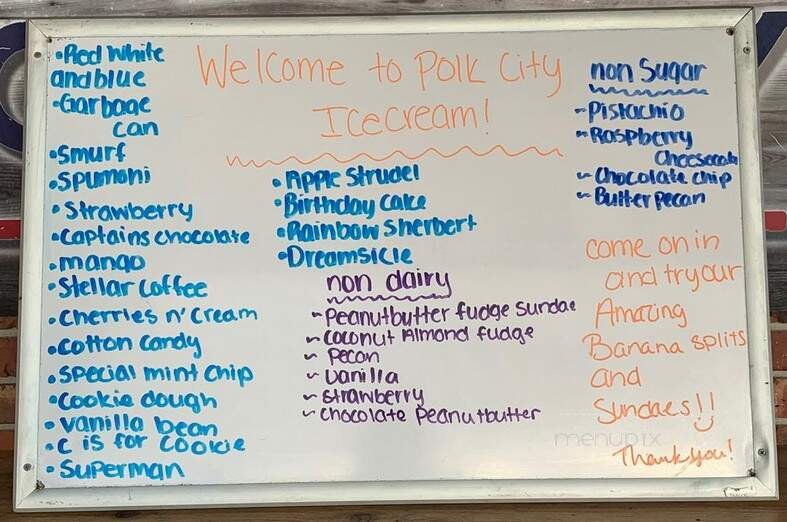 Welcome to Polk City
Icecream!
•Red White
and blue
•Garbage
can
•Smurf
•Spumoni
•Strawberry
•Captains chocolate
•mango
•Stellar Coffee
•Cherries n' Cream
•Cotton candy
•Special mint chip
•Cookie dough
•Vanilla bean
•C is for Cookie
•Superman
•Apple Strudel
•Birthday Cake
•Rainbow Sherbert
•Dreamsicle
non dairy
~Peanutbutter fudge Sundae
~Coconut Almond fudge
~Pecan
~Vanilla
~Strawberry
~Chocolate Peanutbutter
non Sugar
~Pistachio
~Raspberry
Cheesecake
~Chocolate chip
~Butter pecan
come on in
and try our
Amazing
Banana splits
and
Sundaes!!
Thank you!
menupix